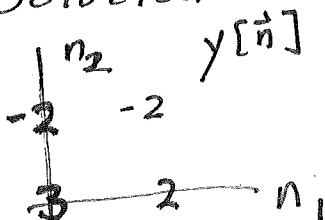 Solution
n₂ y[n⃗]
-2 -2
3 2 n₁